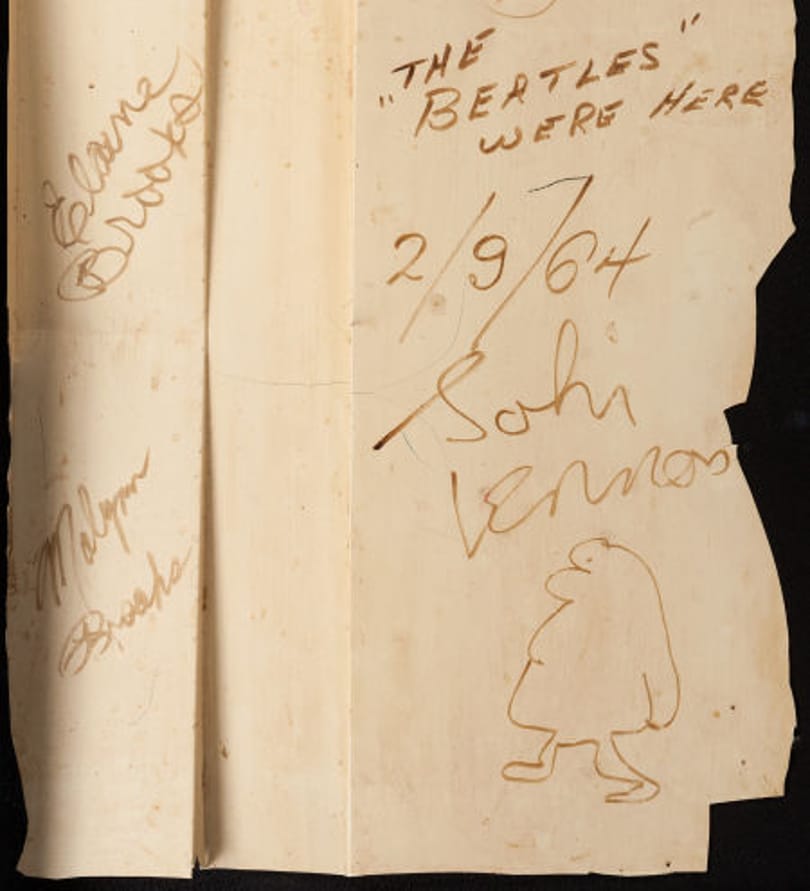 Elaine
Brooks
Malynn
Brooks
THE
"BEATLES"
WERE HERE
2/9/64
John
Lennon